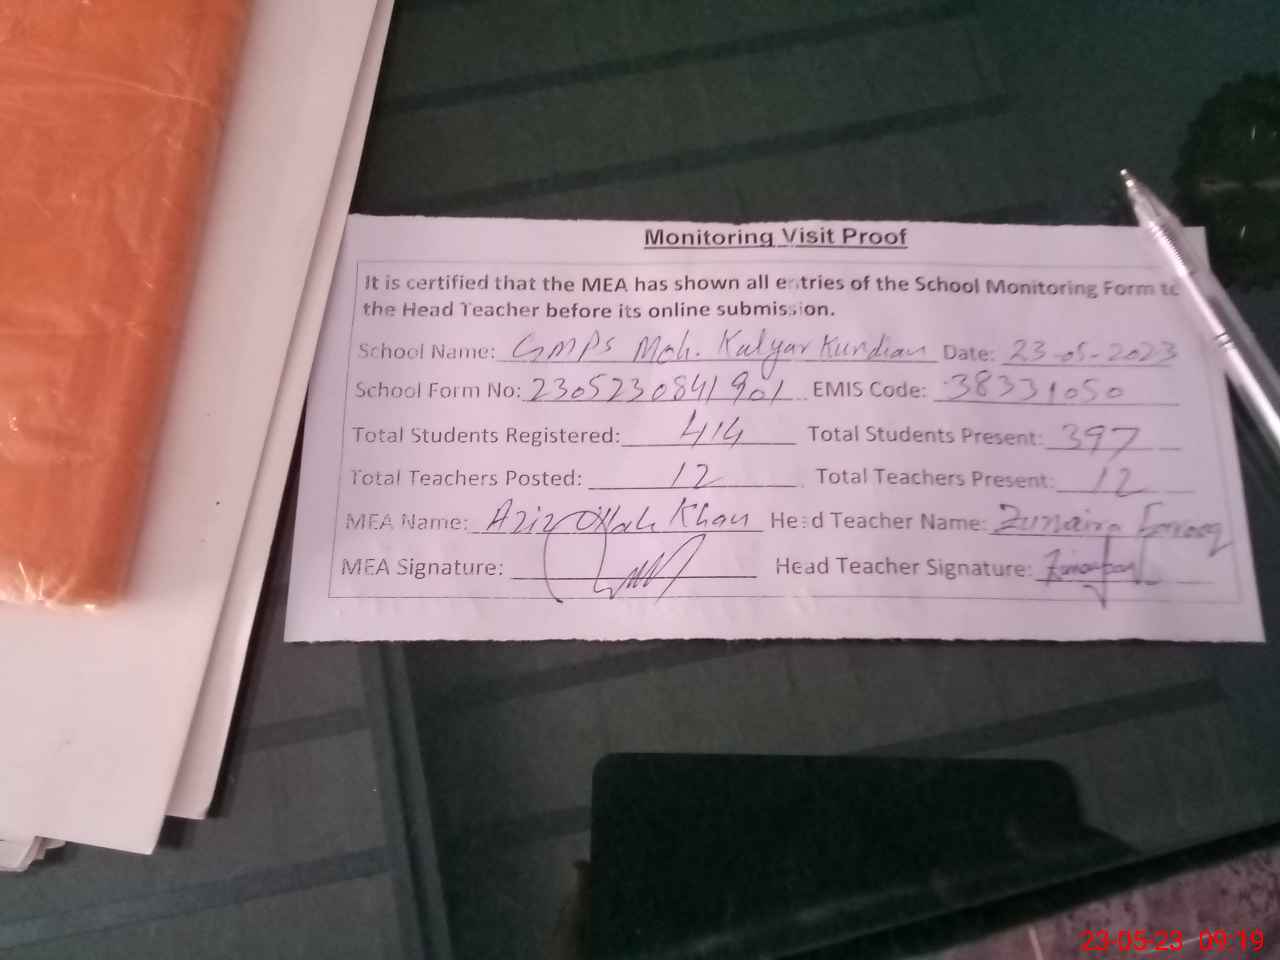 Monitoring Visit Proof
It is certified that the MEA has shown all entries of the School Monitoring Form to
the Head Teacher before its online submission.
School Name: GMPS Moh. Kalyar Kundian Date: 23-05-2023
School Form No: 2305230841901 EMIS Code: 38331050
Total Students Registered: 414 Total Students Present: 397
Total Teachers Posted: 12 Total Teachers Present: 12
MEA Name: Aziz Ollah Khan Head Teacher Name: Zunaira Farooq
MEA Signature: Head Teacher Signature:
23-05-23 09:19